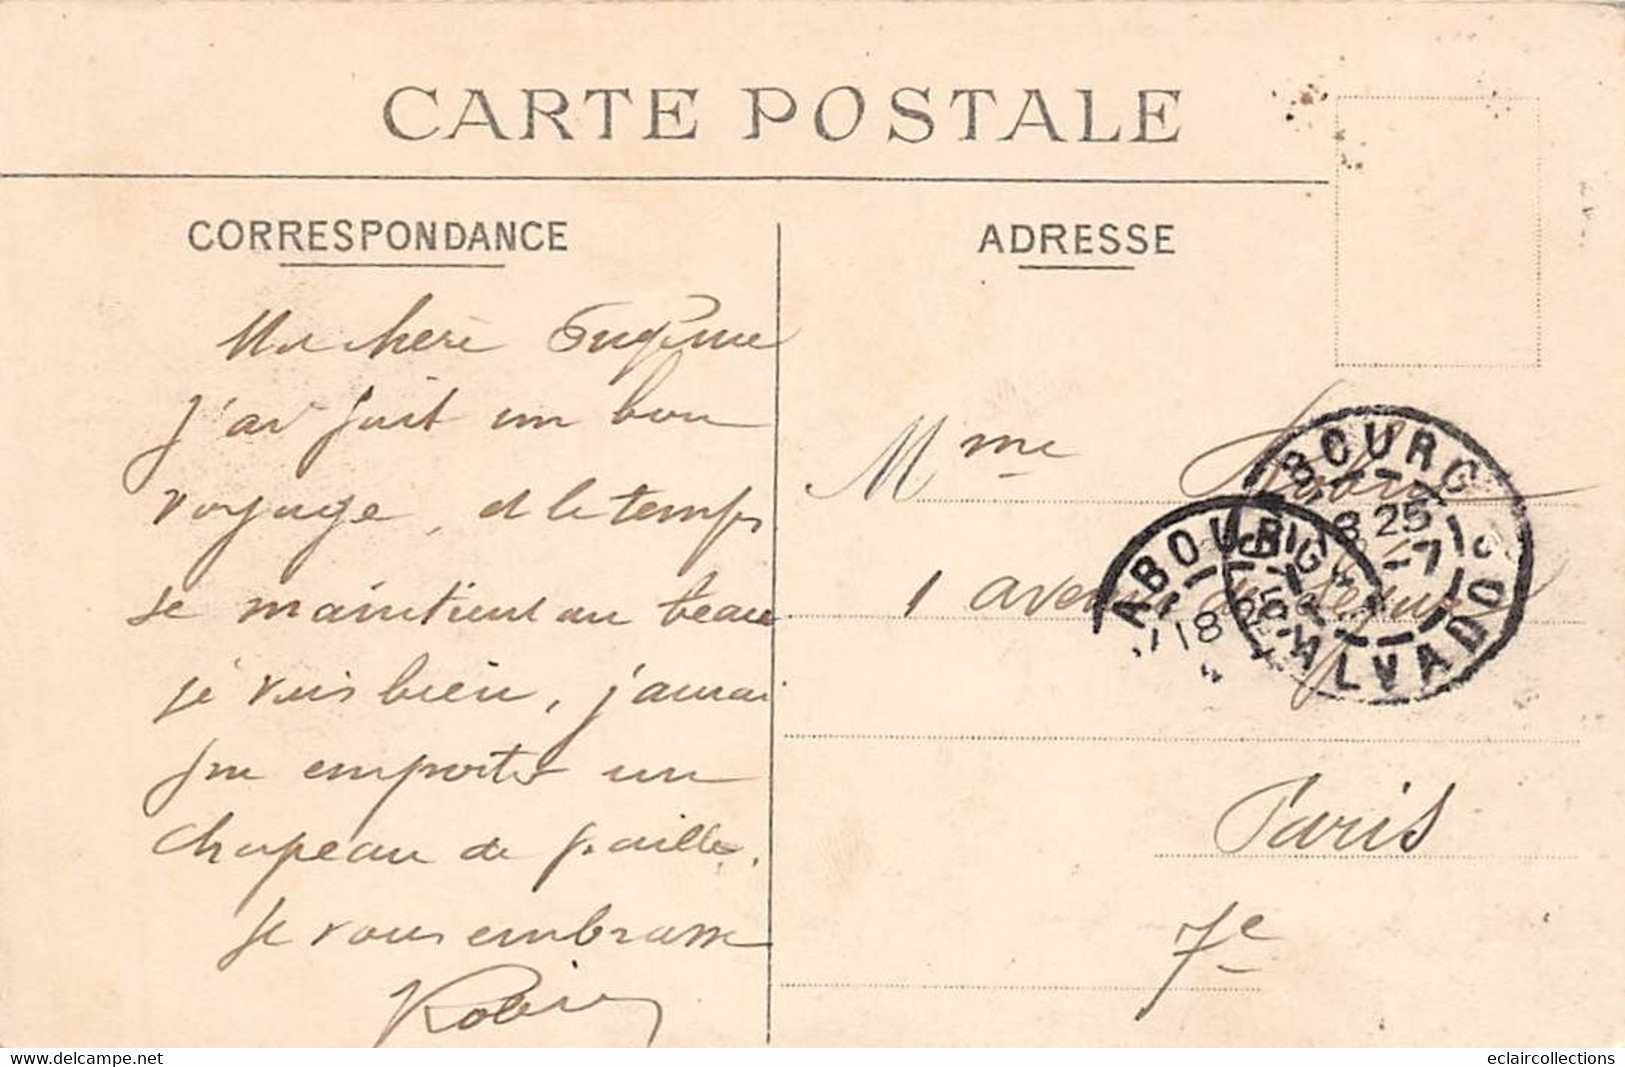 CARTE POSTALE
CORRESPONDANCE
ADRESSE
Ma chère Eugénie
J'ai fait un bon
voyage, et le temps
se maintient au beau
je vais bien, j'aurai
pu emporter un
chapeau de paille.
Je vous embrasse
Robin
Mme Robin
1 avenue de Ségur
Paris
7e
CABOURG
CALVADOS
8 25
-7
CABOURG
18 25
eclaircollections